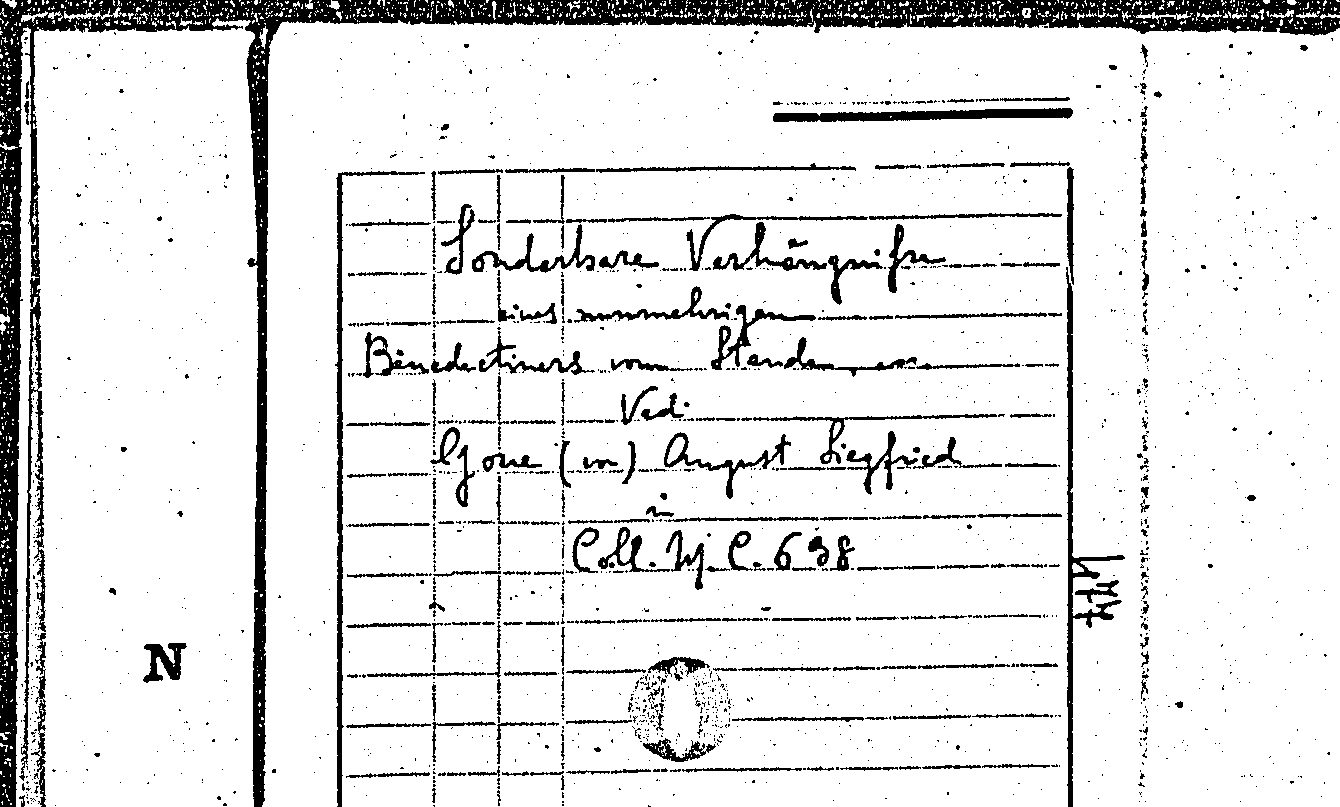 Sonderbare Verhängniße
eines nunmehrigen
Benedectiners vom Stande,
Vedi
Goue (von) August Siegfried
in
Coll. Mj. C. 638
N